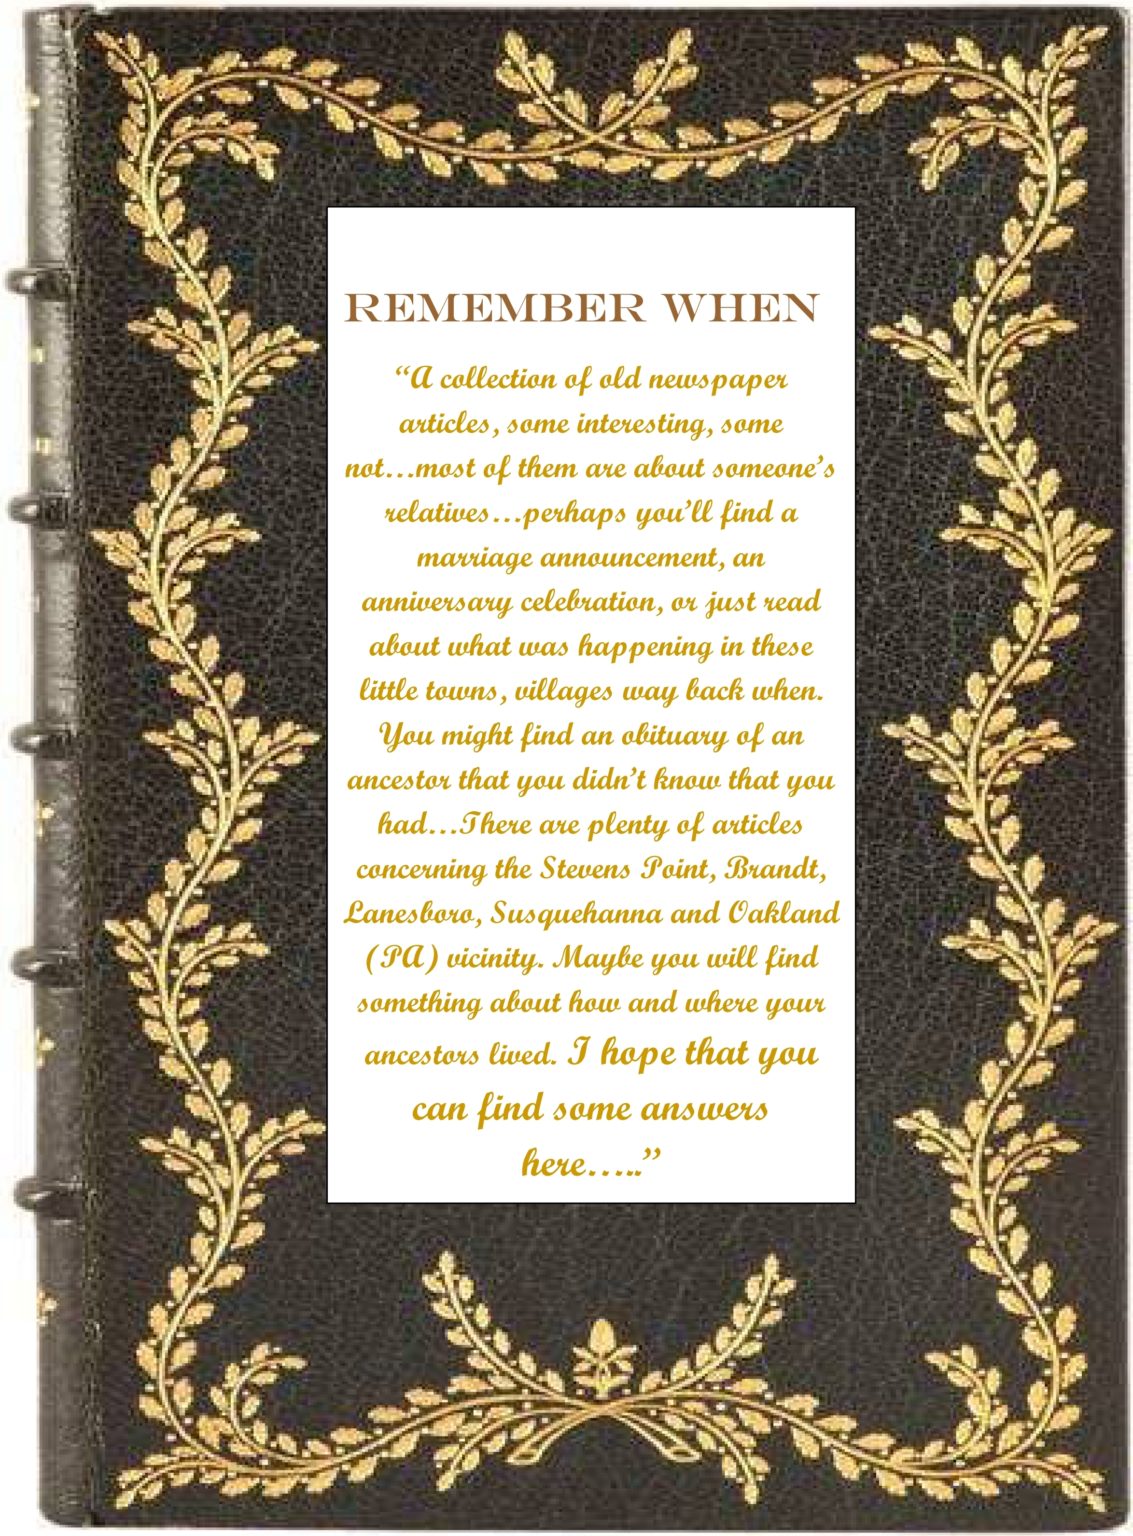 REMEMBER WHEN
“A collection of old newspaper
articles, some interesting, some
not…most of them are about someone’s
relatives…perhaps you’ll find a
marriage announcement, an
anniversary celebration, or just read
about what was happening in these
little towns, villages way back when.
You might find an obituary of an
ancestor that you didn’t know that you
had…There are plenty of articles
concerning the Stevens Point, Brandt,
Lanesboro, Susquehanna and Oakland
(PA) vicinity. Maybe you will find
something about how and where your
ancestors lived. I hope that you
can find some answers
here…..”